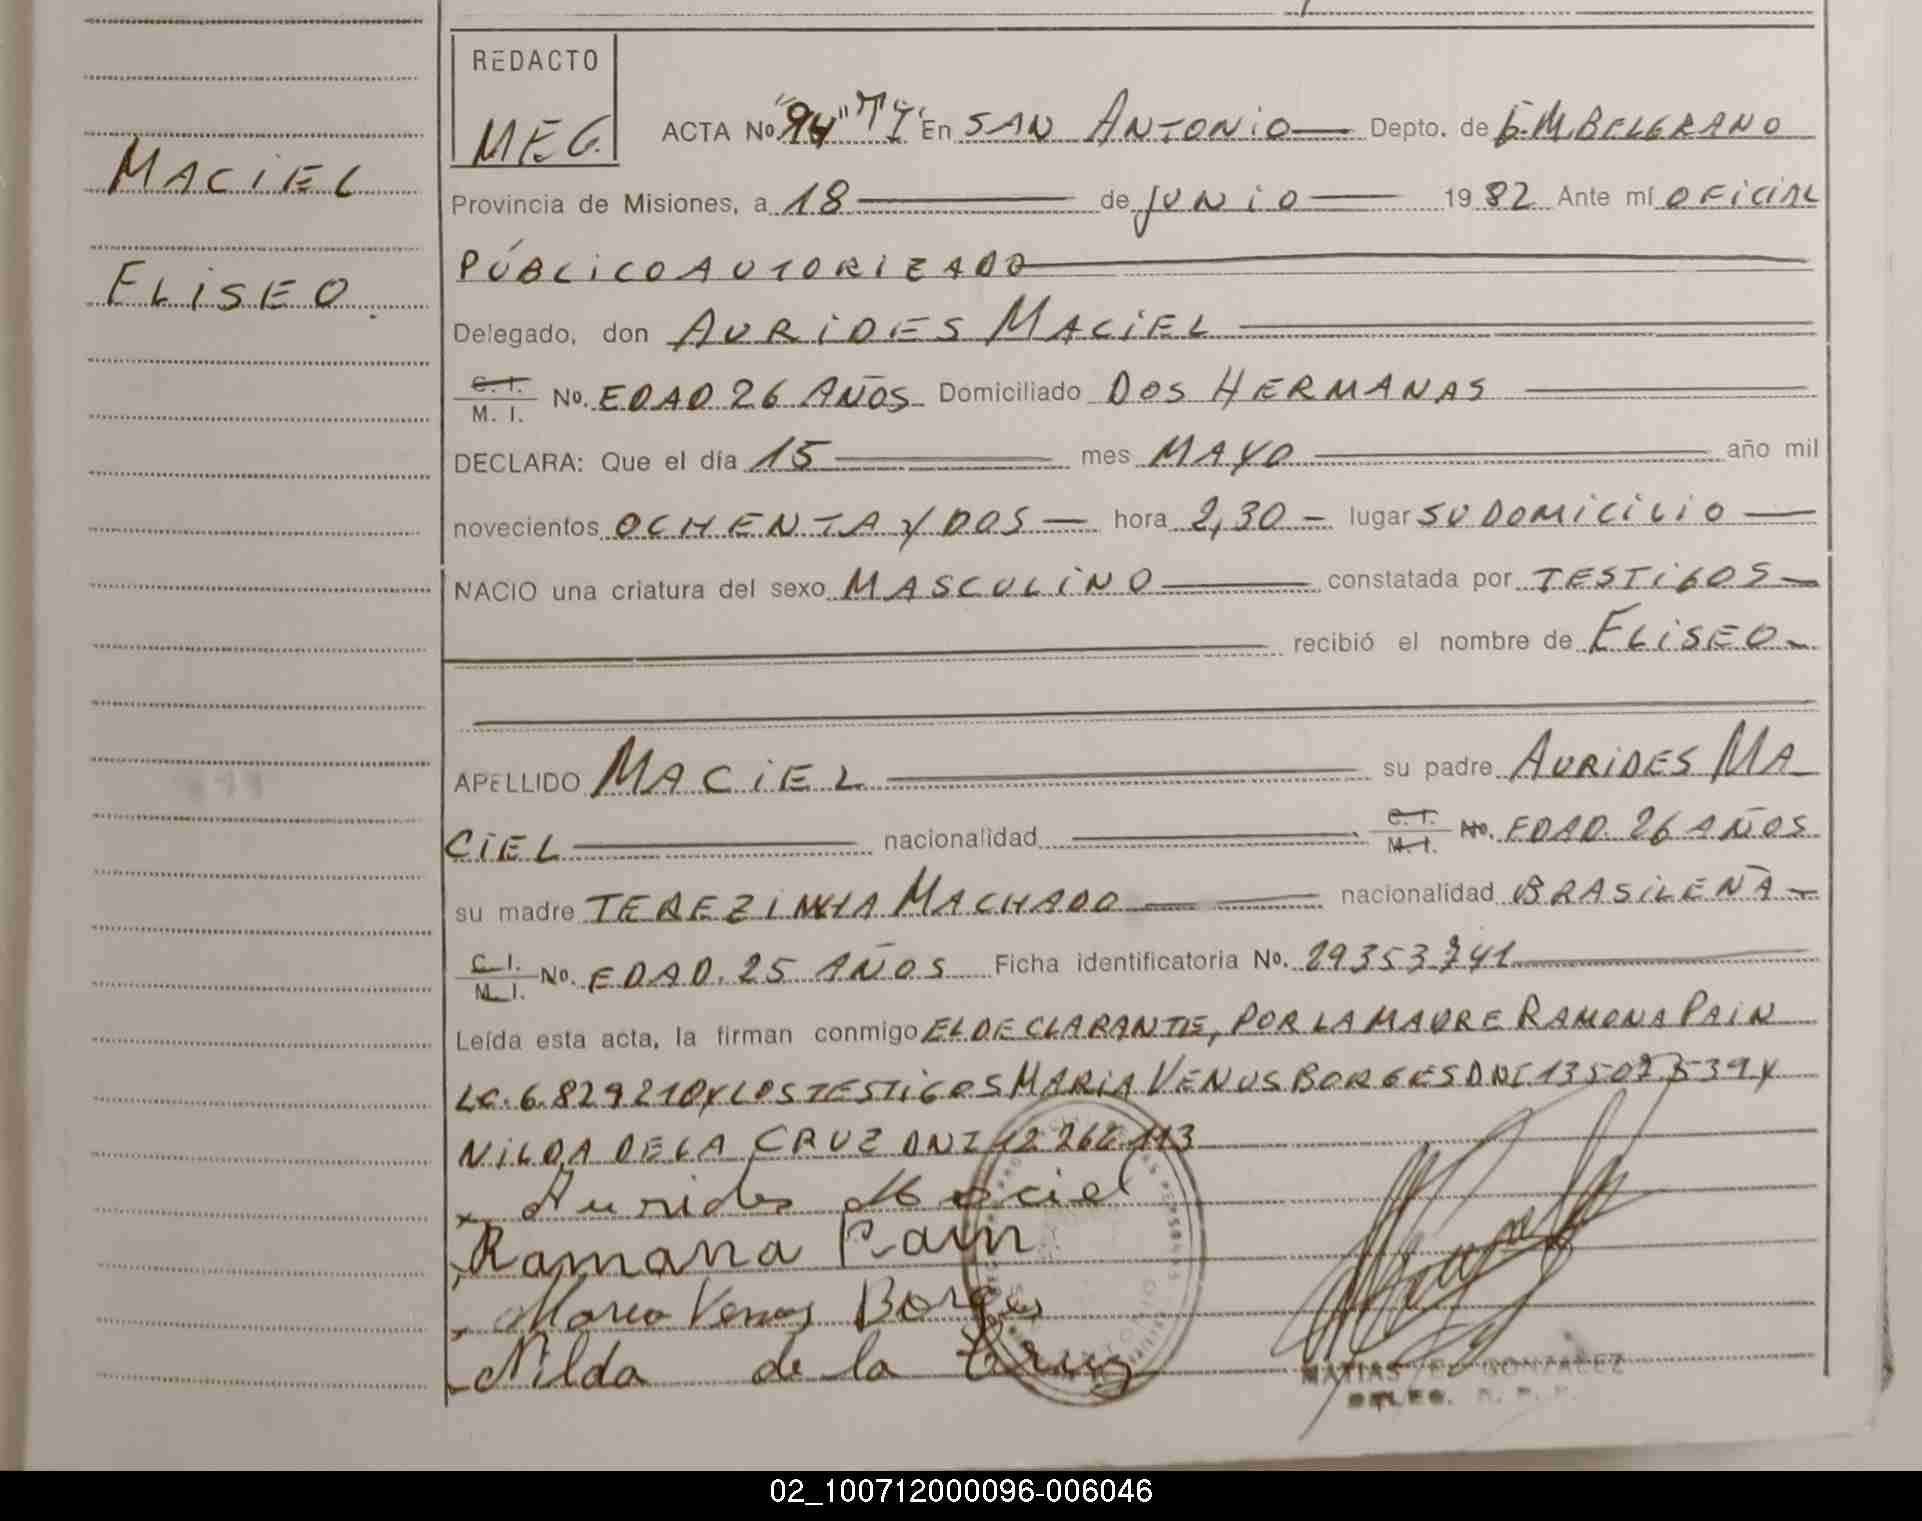 REDACTO
MEG.
MACIEL
ELISEO.
ACTA No. "94" "TI" En SAN ANTONIO Depto. de G.M.BELGRANO
Provincia de Misiones, a 18 de JUNIO 1982 Ante mí OFICIAL
PÚBLICO AUTORIZADO
Delegado, don AURIDES MACIEL
C. I. M. I. No. EDAD 26 AÑOS Domiciliado DOS HERMANAS
DECLARA: Que el día 15 mes MAYO año mil
novecientos OCHENTA Y DOS hora 2,30 lugar SU DOMICILIO
NACIO una criatura del sexo MASCULINO constatada por TESTIGOS
recibió el nombre de ELISEO
APELLIDO MACIEL su padre AURIDES MA
CIEL nacionalidad C. I. M. I. No. EDAD. 26 AÑOS
su madre TEREZINHA MACHADO nacionalidad BRASILEÑA
C. I. M. I. No. EDAD. 25 AÑOS Ficha identificatoria No. 29353741
Leída esta acta, la firman conmigo EL DECLARANTE, POR LA MADRE RAMONA PAIN
LC. 6.829210 Y LOS TESTIGOS MARIA VENUS BORGES DNI Y
NILDA DE LA CRUZ DNI
Aurides Maciel
Ramona Pain
Maria Venus Borges
Nilda de la Cruz
MATIAS E. GONZALEZ
DELEG. R. P. P.
02_100712000096-006046